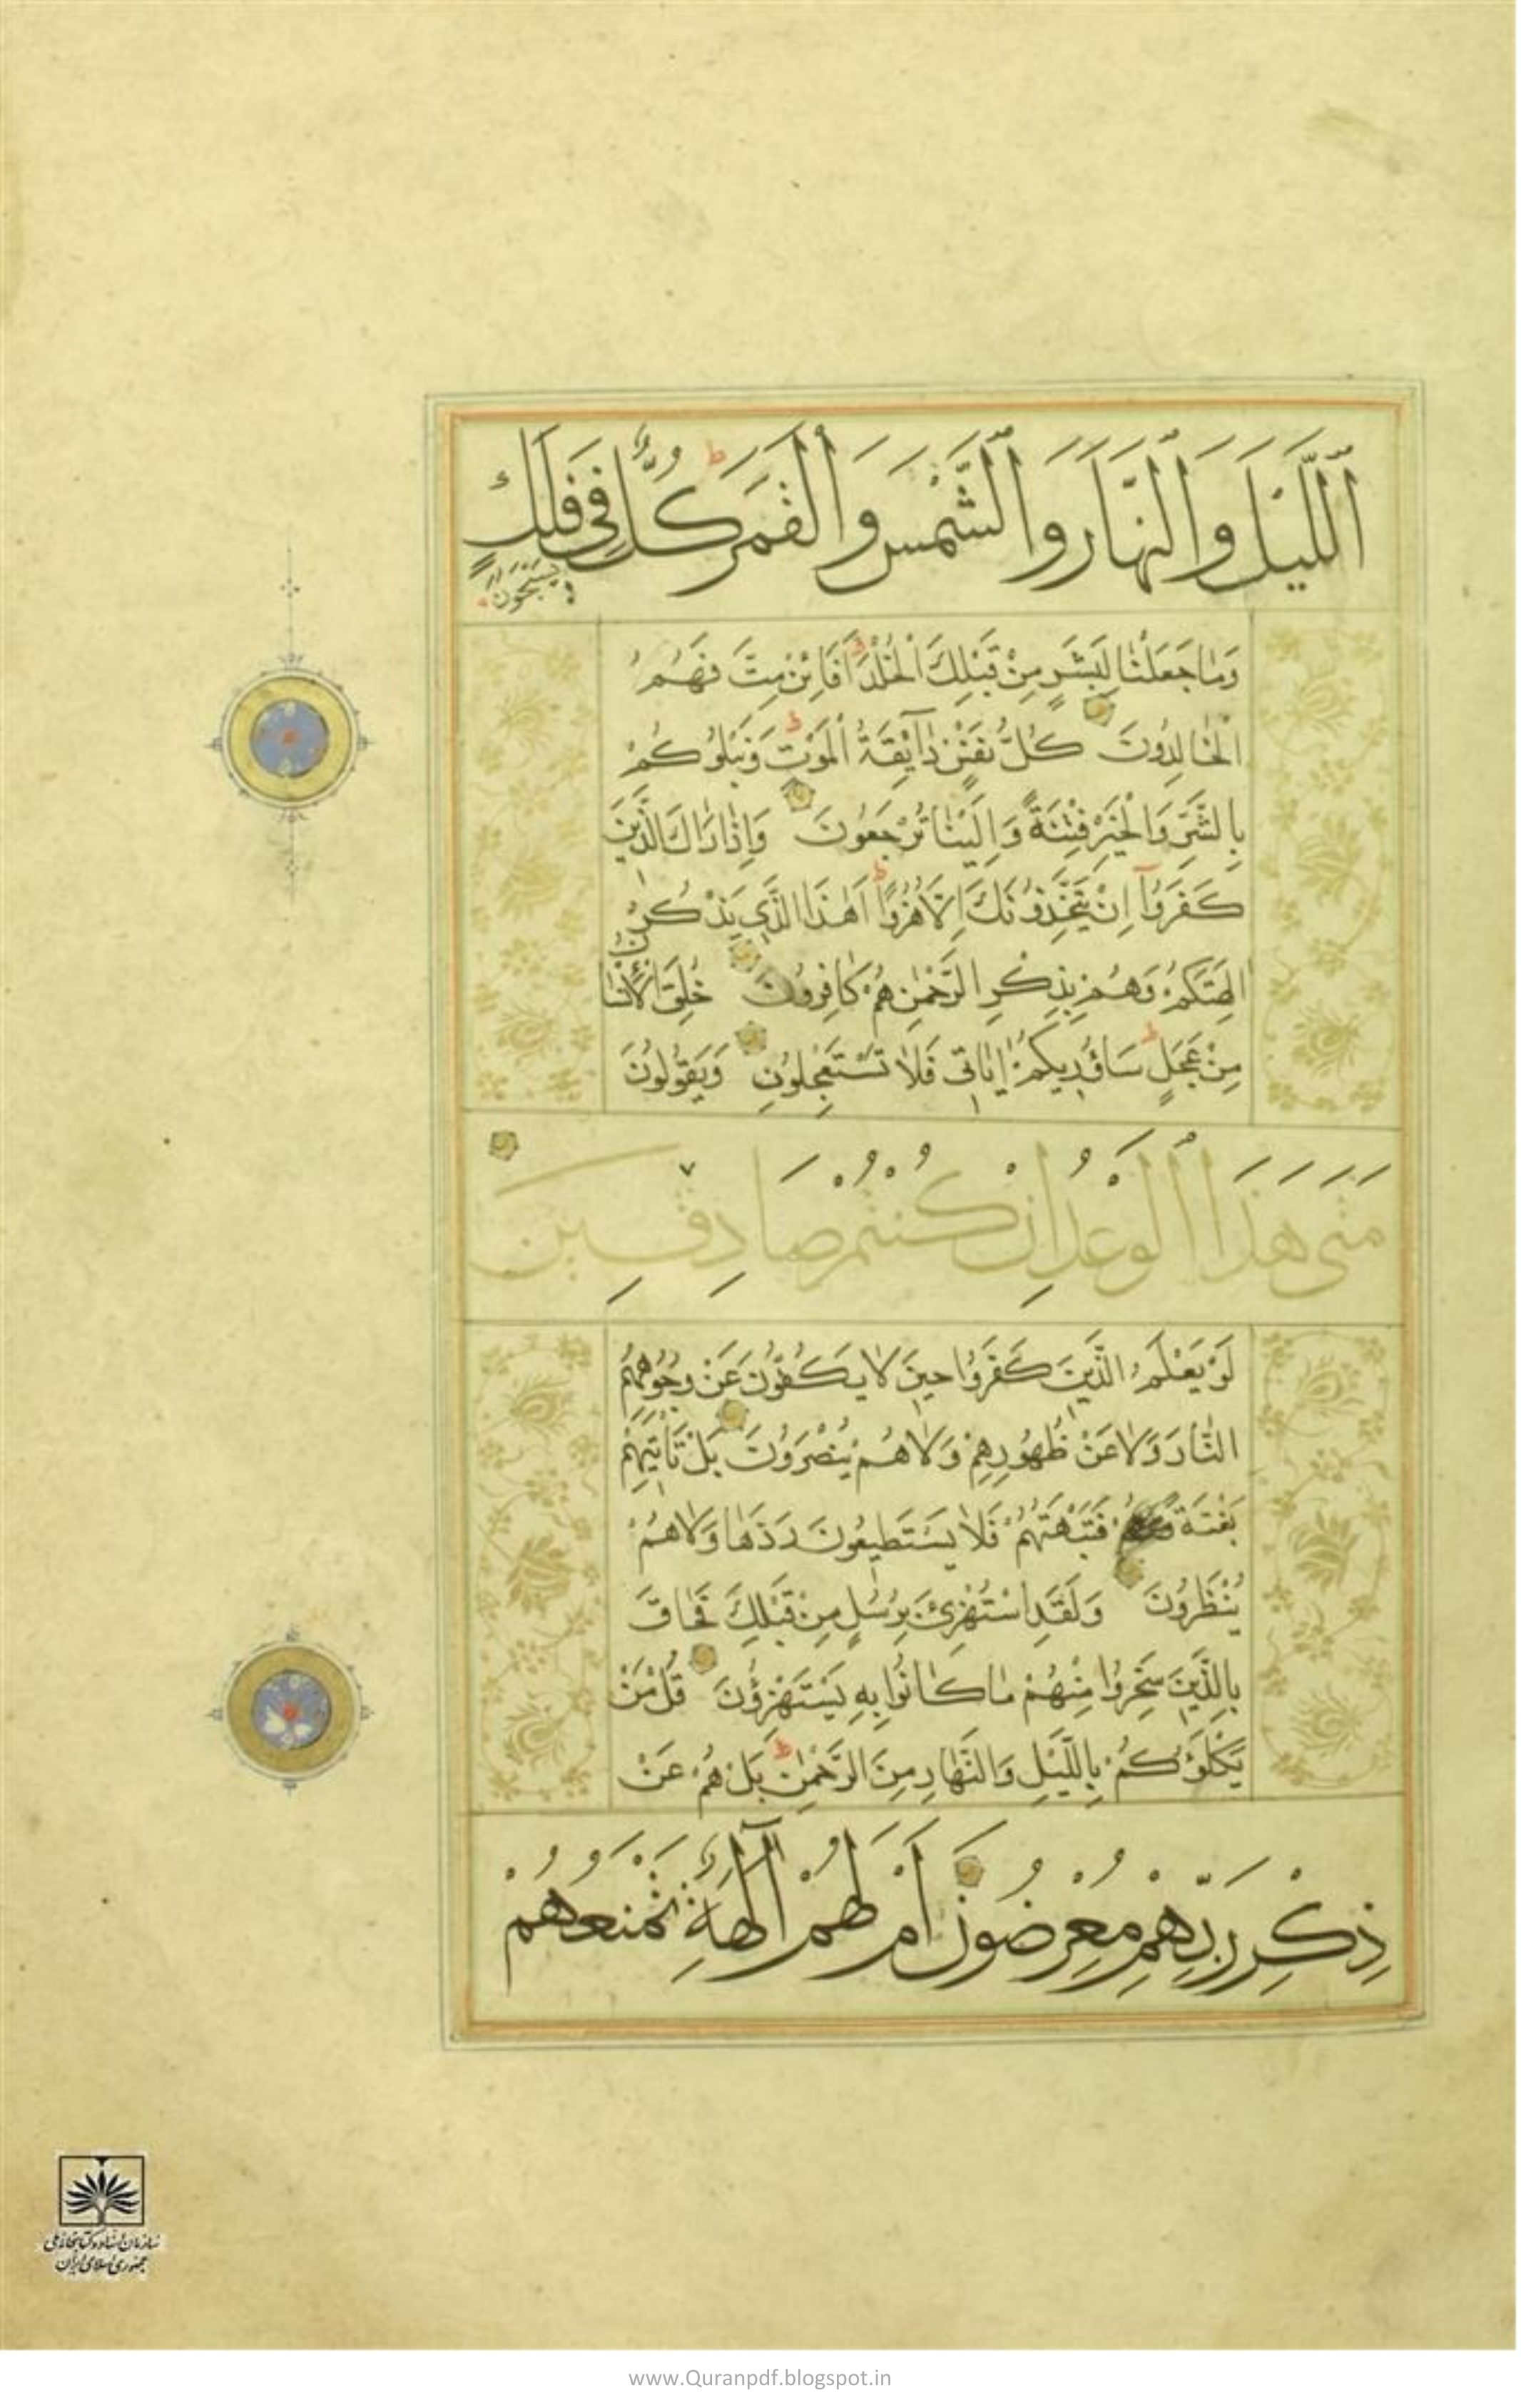 ٱللَّيْلَ وَٱلنَّهَارَ وَٱلشَّمْسَ وَٱلْقَمَرَ كُلٌّ فِي فَلَكٍ
يَسْبَحُونَ
وَمَا جَعَلْنَا لِبَشَرٍ مِنْ قَبْلِكَ الْخُلْدَ أَفَإِنْ مِتَّ فَهُمُ
الْخَالِدُونَ كُلُّ نَفْسٍ ذَآئِقَةُ الْمَوْتِ وَنَبْلُوكُمْ
بِالشَّرِّ وَالْخَيْرِ فِتْنَةً وَإِلَيْنَا تُرْجَعُونَ وَإِذَا رَاٰكَ الَّذِينَ
كَفَرُوآ اِنْ يَتَّخِذُونَكَ اِلَّا هُزُوًا اَهٰذَا الَّذِي يَذْكُرُ
اٰلِهَتَكُمْ وَهُمْ بِذِكْرِ الرَّحْمٰنِ هُمْ كَافِرُونَ خُلِقَ الْاِنْسَا
نُ
مِنْ عَجَلٍ سَاُو۟رِيكُمْ اٰيَاتِي فَلَا تَسْتَعْجِلُونِ وَيَقُولُونَ
مَتَى هَذَا ٱلْوَعْدُ اِنْ كُنْتُمْ صَادِقِينَ
لَوْ يَعْلَمُ الَّذِينَ كَفَرُوا حِينَ لَا يَكُفُّونَ عَنْ وُجُوهِهِمُ
النَّارَ وَلَا عَنْ ظُهُورِهِمْ وَلَا هُمْ يُنْصَرُونَ بَلْ تَأْتِيهِمْ
بَغْتَةً فَتَبْهَتُهُمْ فَلَا يَسْتَطِيعُونَ رَدَّهَا وَلَا هُمْ
يُنْظَرُونَ وَلَقَدِ اسْتُهْزِئَ بِرُسُلٍ مِنْ قَبْلِكَ فَحَاقَ
بِالَّذِينَ سَخِرُوا مِنْهُمْ مَا كَانُوا بِهِ يَسْتَهْزِؤُنَ قُلْ مَنْ
يَكْلَؤُكُمْ بِاللَّيْلِ وَالنَّهَارِ مِنَ الرَّحْمٰنِ بَلْ هُمْ عَنْ
ذِكْرِ رَبِّهِمْ مُعْرِضُونَ اَمْ لَهُمْ آلِهَةٌ تَمْنَعُهُمْ
سازمان اسناد و کتابخانه ملی
جمهوری اسلامی ایران
www.Quranpdf.blogspot.in